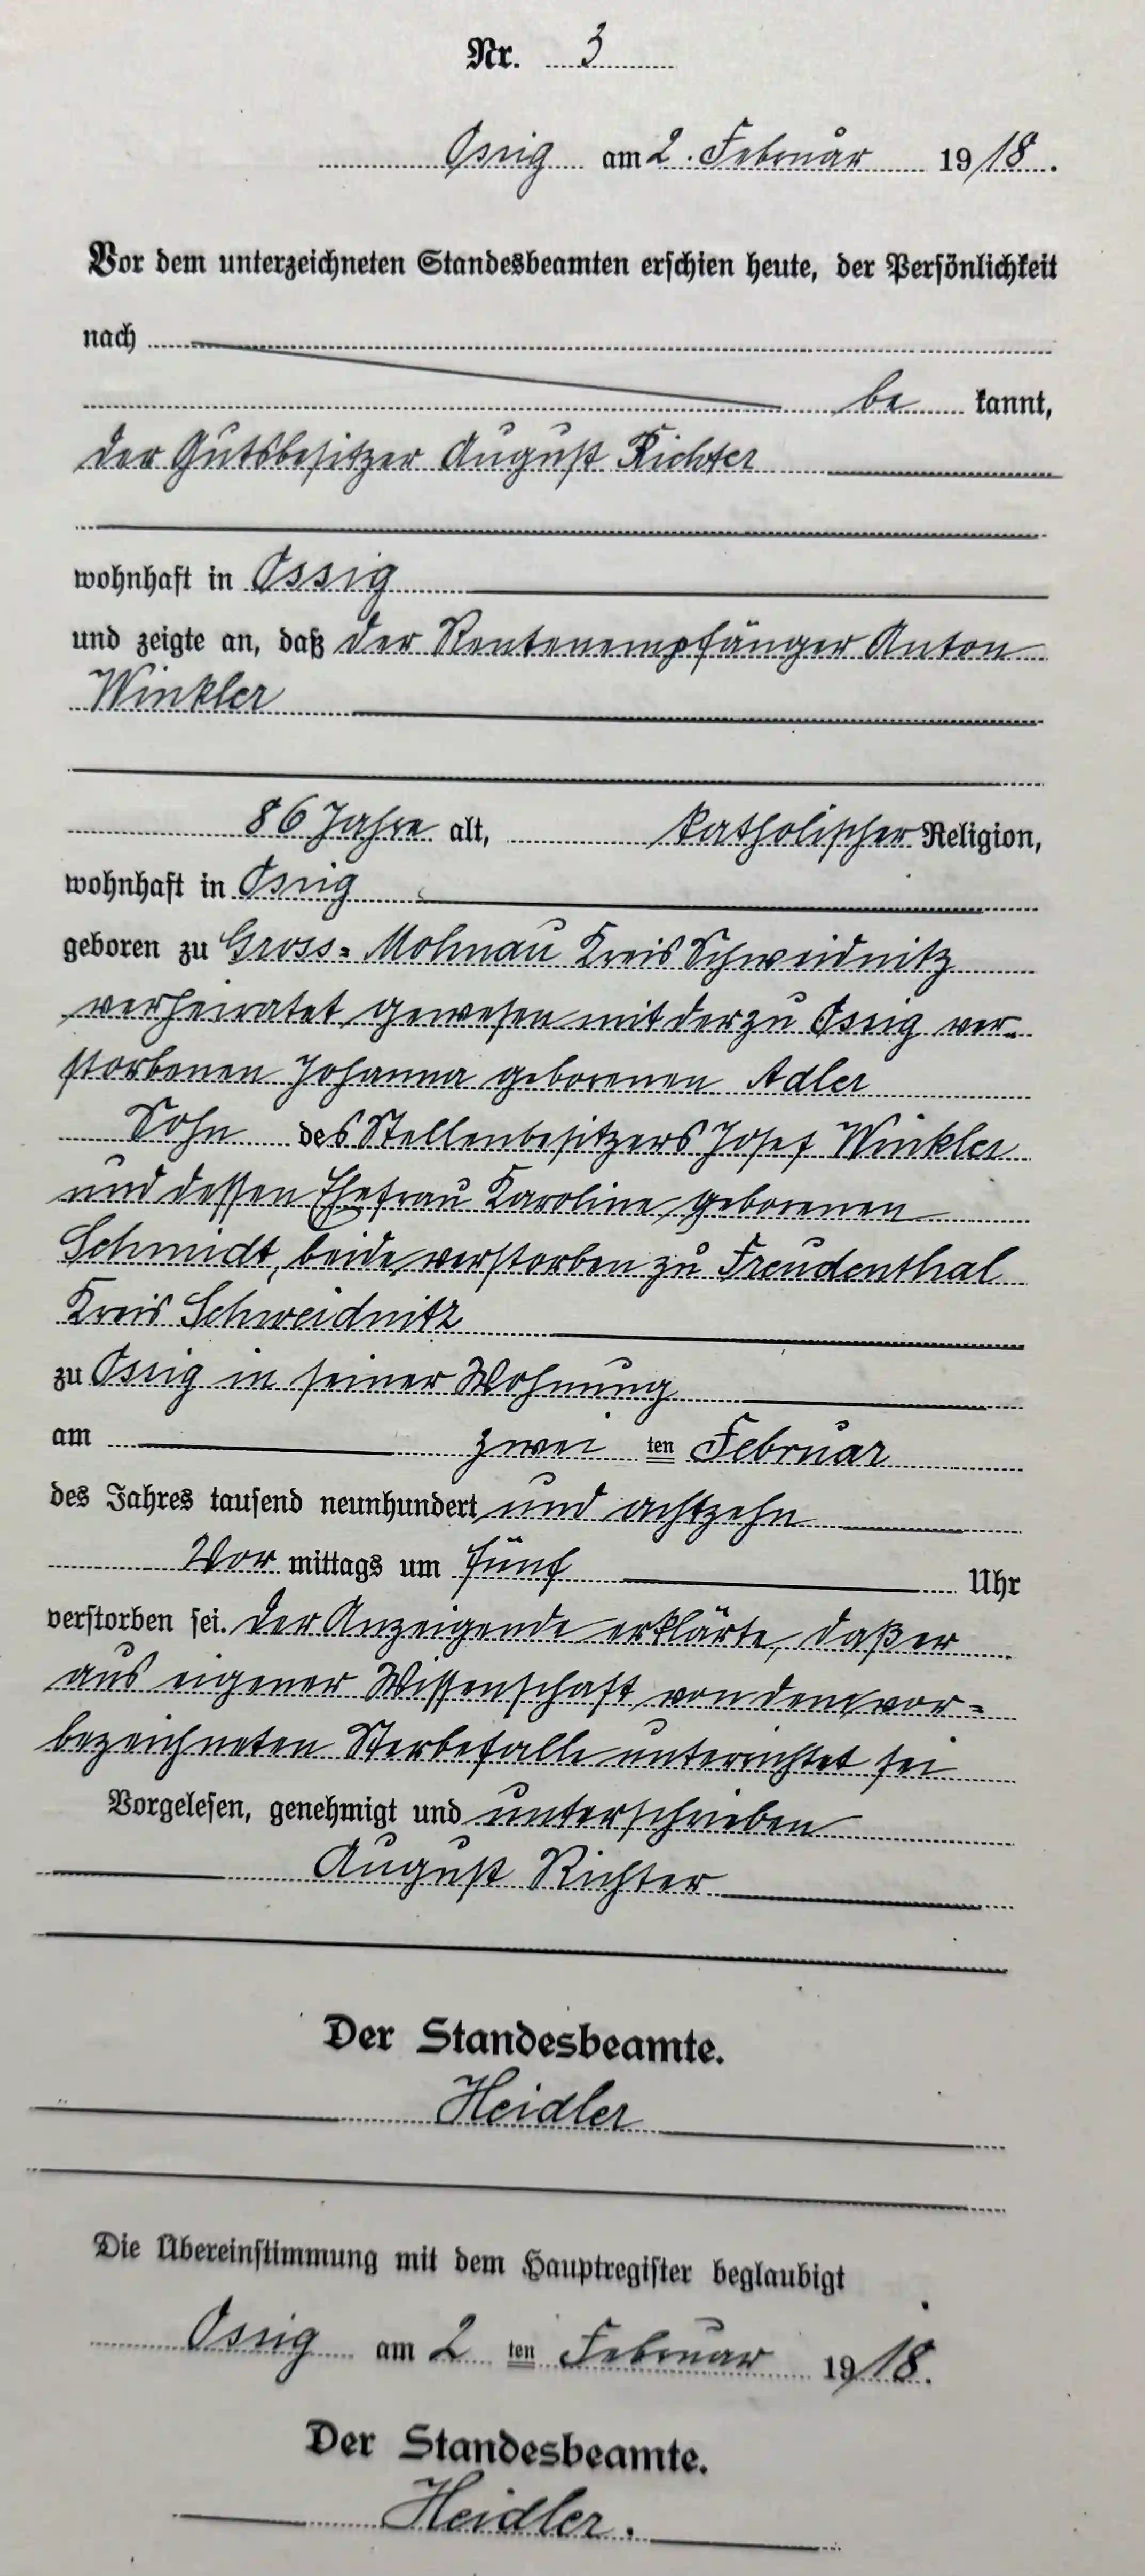 Nr. 3
Ossig am 2. Februar 1918.
Vor dem unterzeichneten Standesbeamten erschien heute, der Persönlichkeit
nach
be kannt,
der Gutsbesitzer August Richter
wohnhaft in Ossig
und zeigte an, daß der Rentenempfänger Anton
Winkler
86 Jahre alt, katholischer Religion,
wohnhaft in Ossig
geboren zu Gross=Mohnau Kreis Schweidnitz
verheiratet gewesen mit der zu Ossig ver-
storbenen Johanna geborenen Adler
Sohn des Stellenbesitzers Josef Winkler
und dessen Ehefrau Karoline geborenen
Schmidt, beide verstorben zu Freudenthal
Kreis Schweidnitz
zu Ossig in seiner Wohnung
am zwei ten Februar
des Jahres tausend neunhundert und achtzehn
Vor mittags um fünf Uhr
verstorben sei. Der Anzeigende erklärte, daß er
aus eigener Wissenschaft von dem vor=
bezeichneten Sterbefalle unterrichtet sei
Vorgelesen, genehmigt und unterschrieben
August Richter
Der Standesbeamte.
Heidler
Die Übereinstimmung mit dem Hauptregister beglaubigt
Ossig am 2 ten Februar 1918.
Der Standesbeamte.
Heidler.